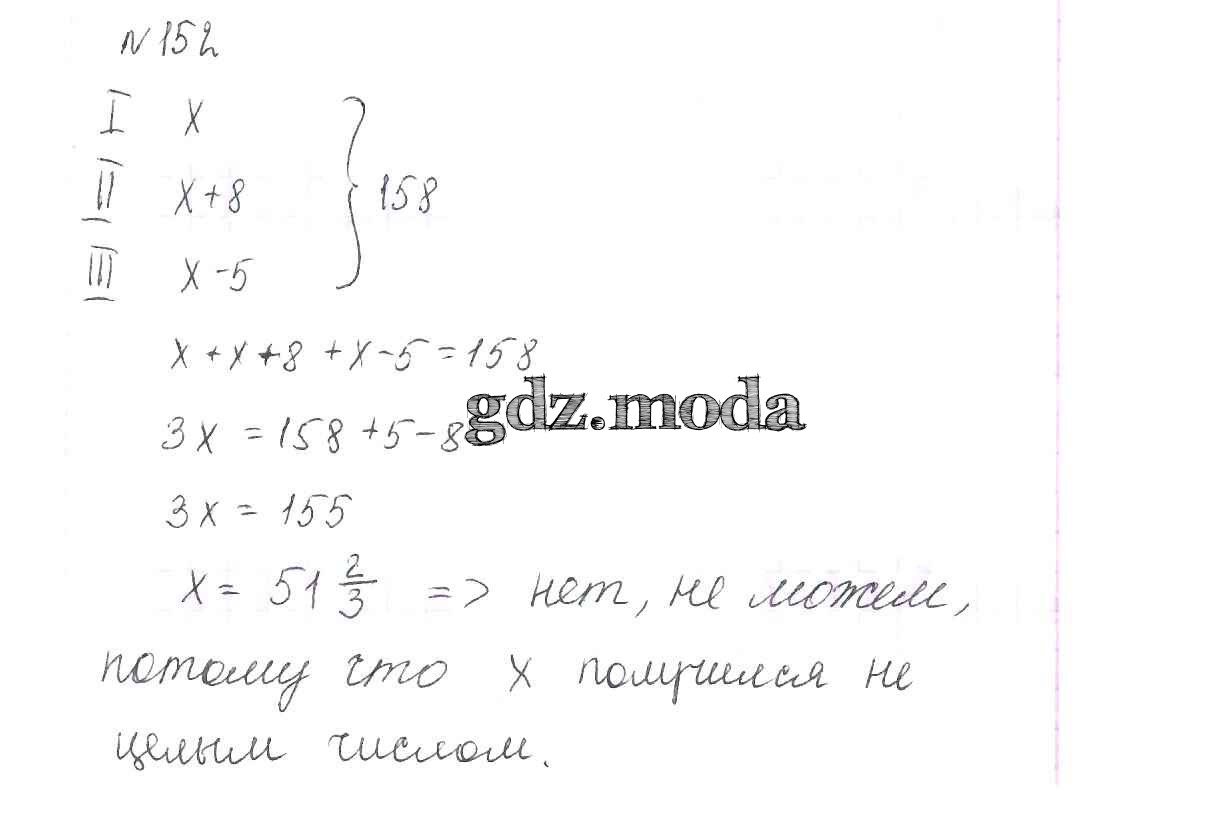 N 152
I x
II x+8
III x-5
158
x+x+8+x-5=158
3x = 158+5-8
gdz.moda
3x = 155
x = 51 2/3 => нет, не можем,
потому что x получился не
целым числом.